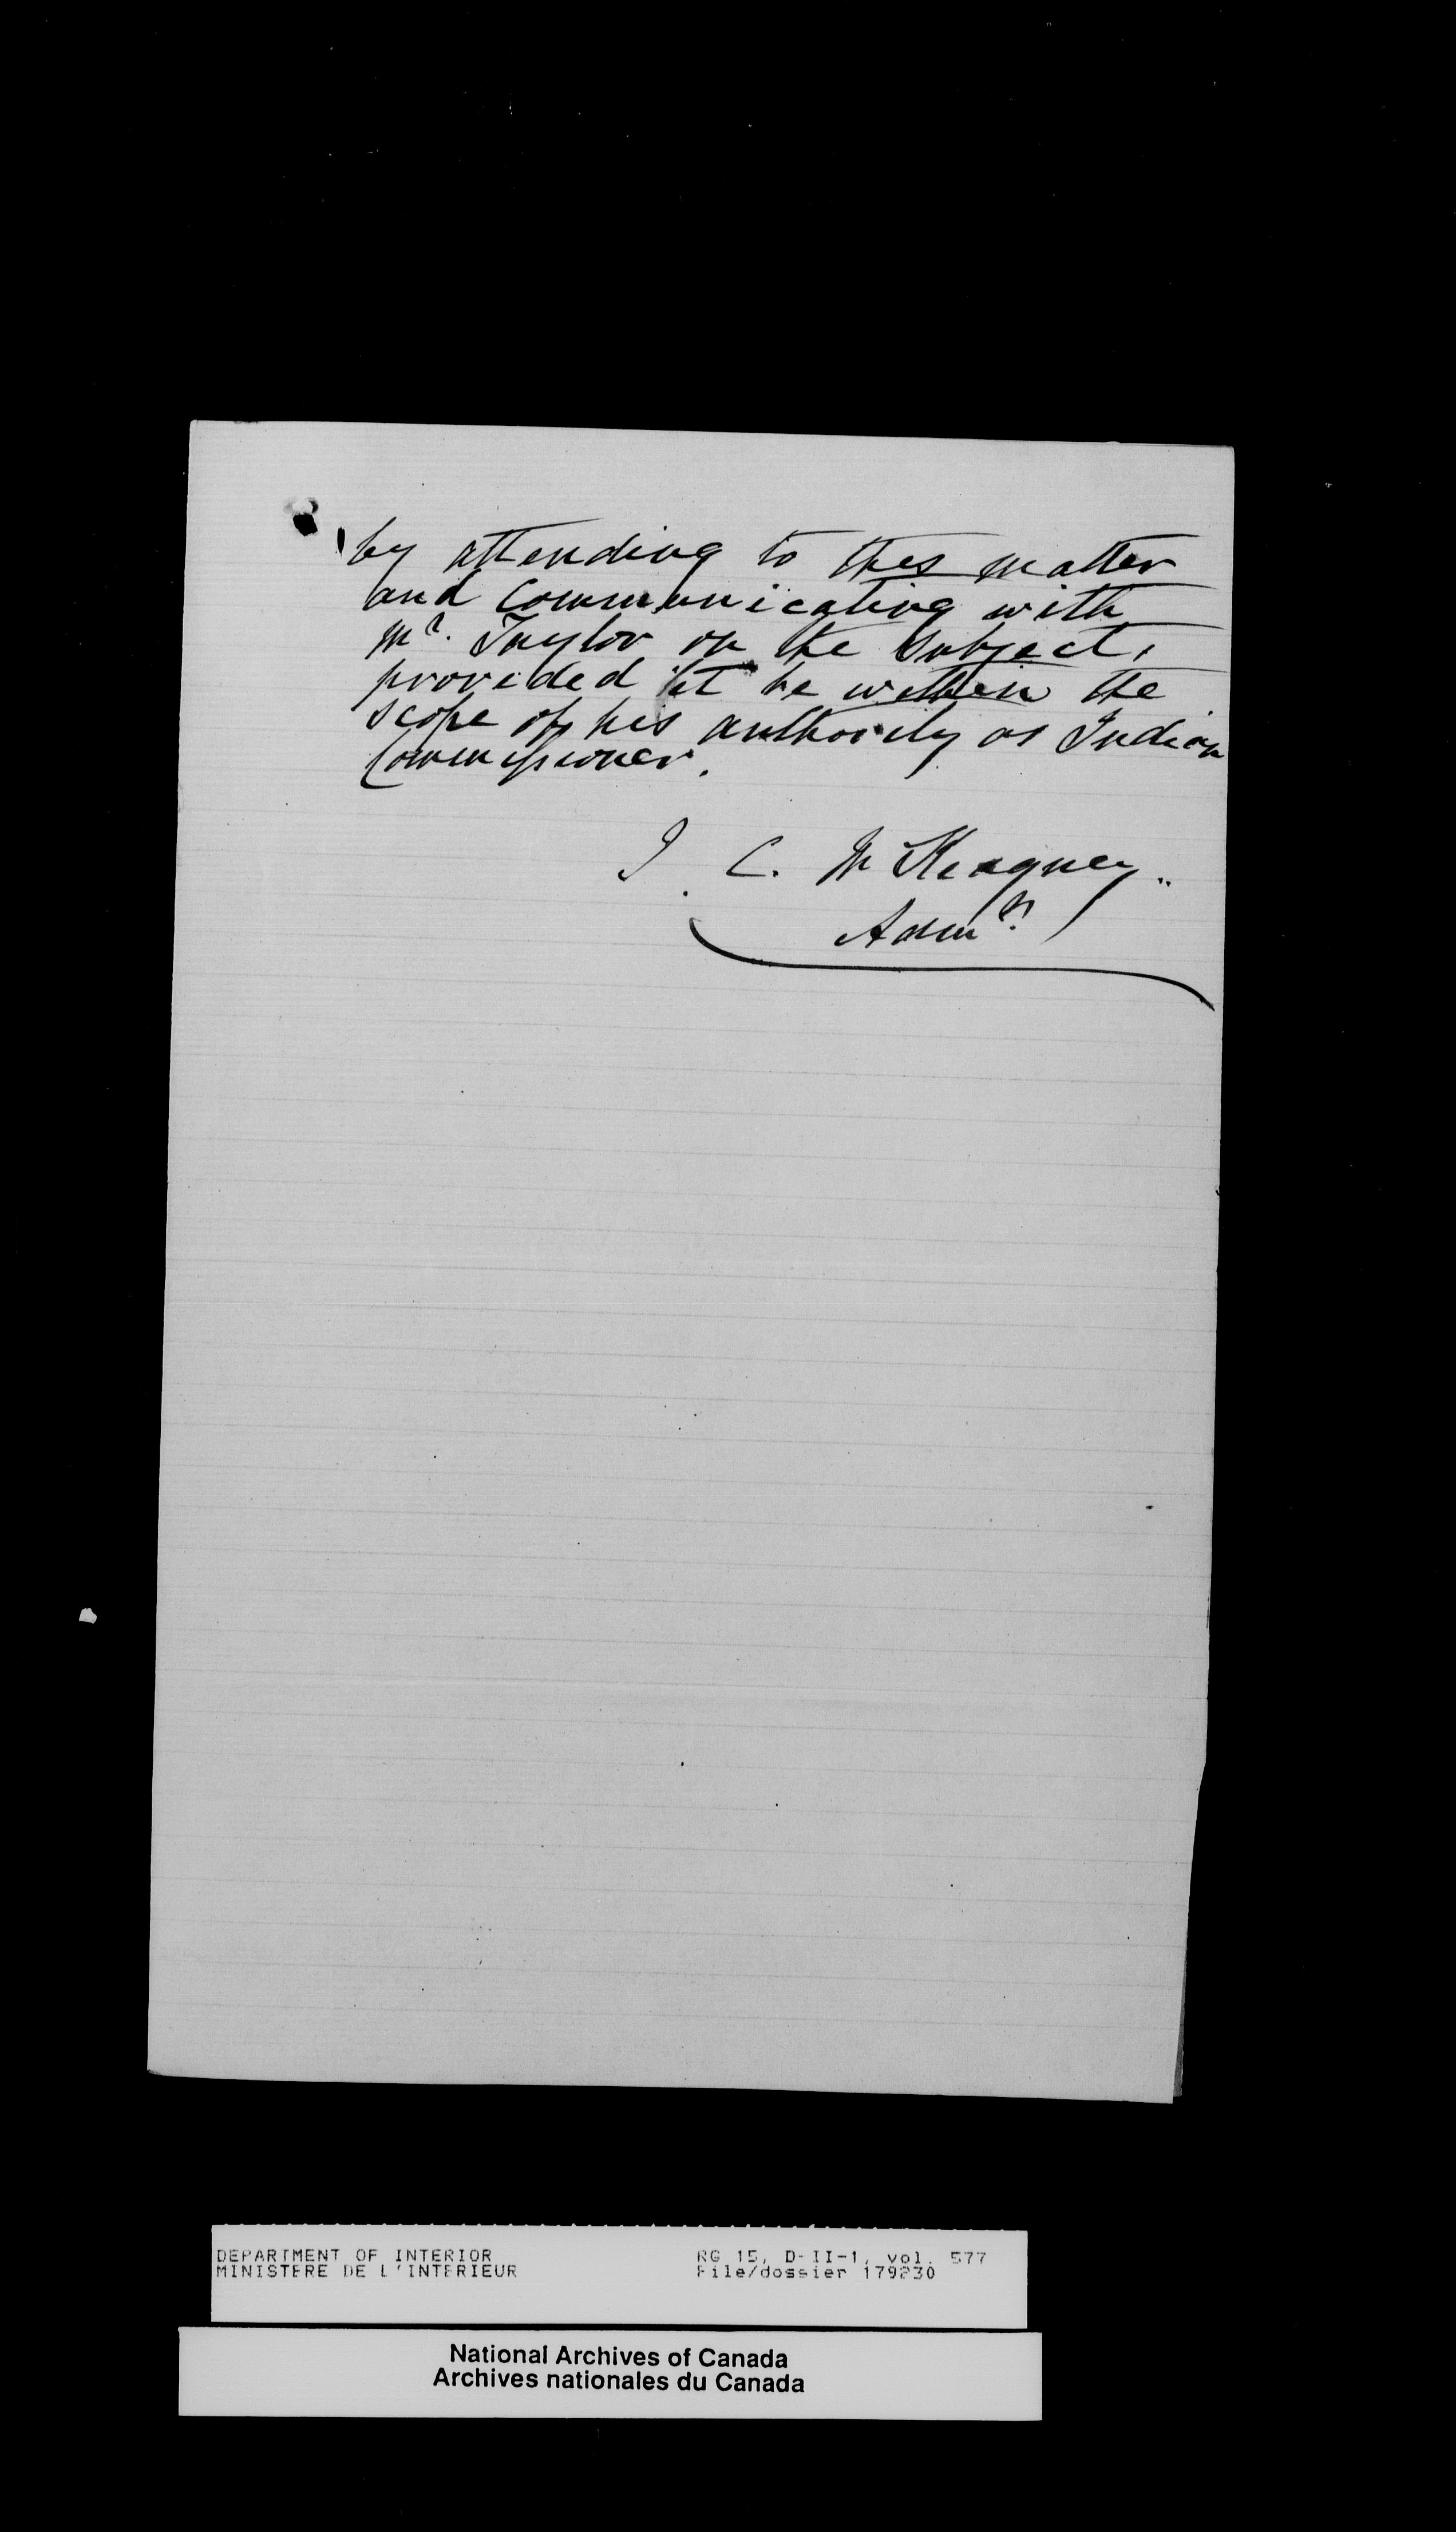 by attending to this matter
and communicating with
Mr. Taylor on the subject,
provided it be within the
scope of his authority as Indian
Commissioner.
J. C. McKeagney
Admr.
DEPARTMENT OF INTERIOR
MINISTERE DE L'INTERIEUR
RG 15, D-II-1, vol. 577
File/dossier 179230
National Archives of Canada
Archives nationales du Canada